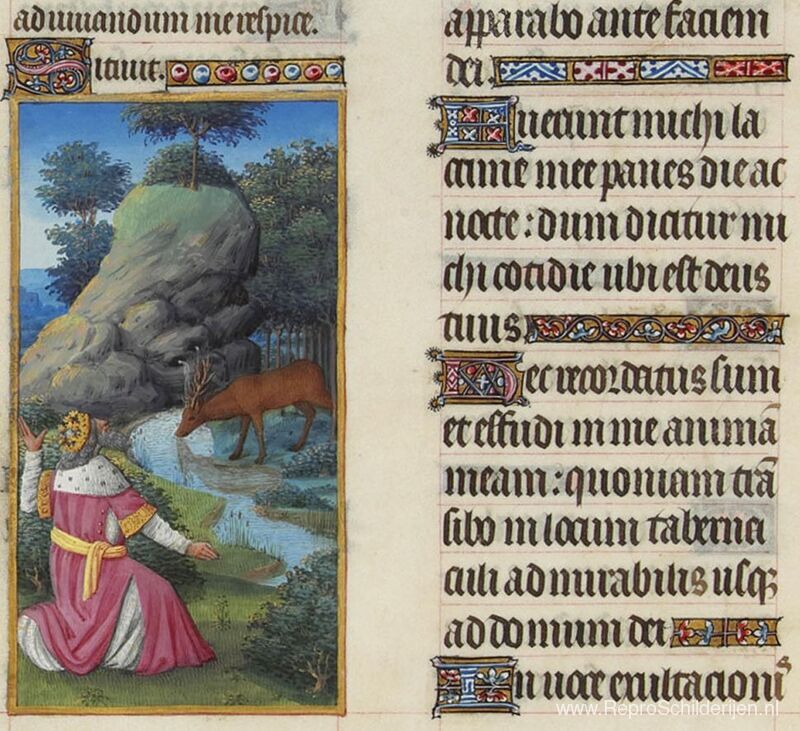 adiuuandum me respice.
Sitiuit.
apparabo ante faciem
dei.
Fuerunt michi la
crime mee panes die ac
nocte: dum dicitur mi
chi cotidie ubi est deus
tuus.
Hec recordatus sum
et effudi in me animā
meam: quoniam trā
sibo in locum taberna
culi admirabilis usqꝫ
ad domum dei
In uoce exultacionis
www.ReproSchilderijen.nl